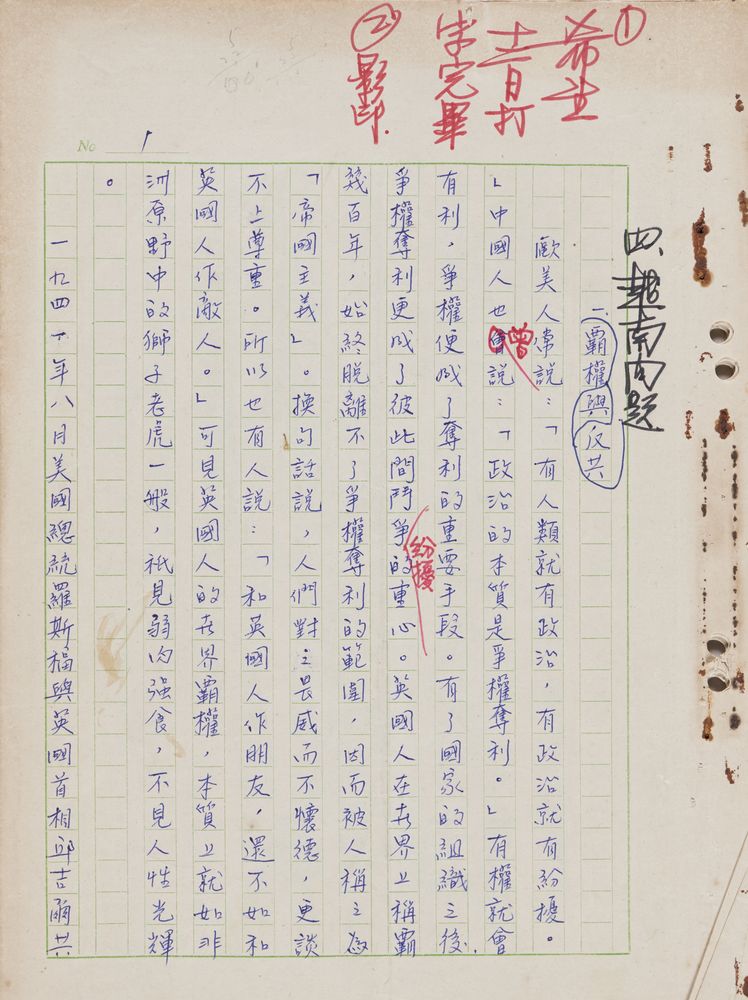 ①
希註
十一日打
字完畢
②
影印.
No 1
四、越南問題
一、霸權與反共
歐美人常說：「有人類就有政治，有政治就有紛擾。
」中國人也曾說：「政治的本質是爭權奪利。」有權就會
有利，爭權便成了奪利的重要手段。有了國家的組織之後，
爭權奪利更成了彼此間鬥爭紛擾的重心。英國人在世界上稱霸
幾百年，始終脫離不了爭權奪利的範圍，因而被人稱之為
「帝國主義」。換句話說，人們對之畏威而不懷德，更談
不上尊重。所以也有人說：「和英國人作朋友，還不如和
英國人作敵人。」可見英國人的世界霸權，本質上就如非
洲原野中的獅子老虎一般，祇見弱肉強食，不見人性光輝
。
一九四一年八月美國總統羅斯福與英國首相邱吉爾共